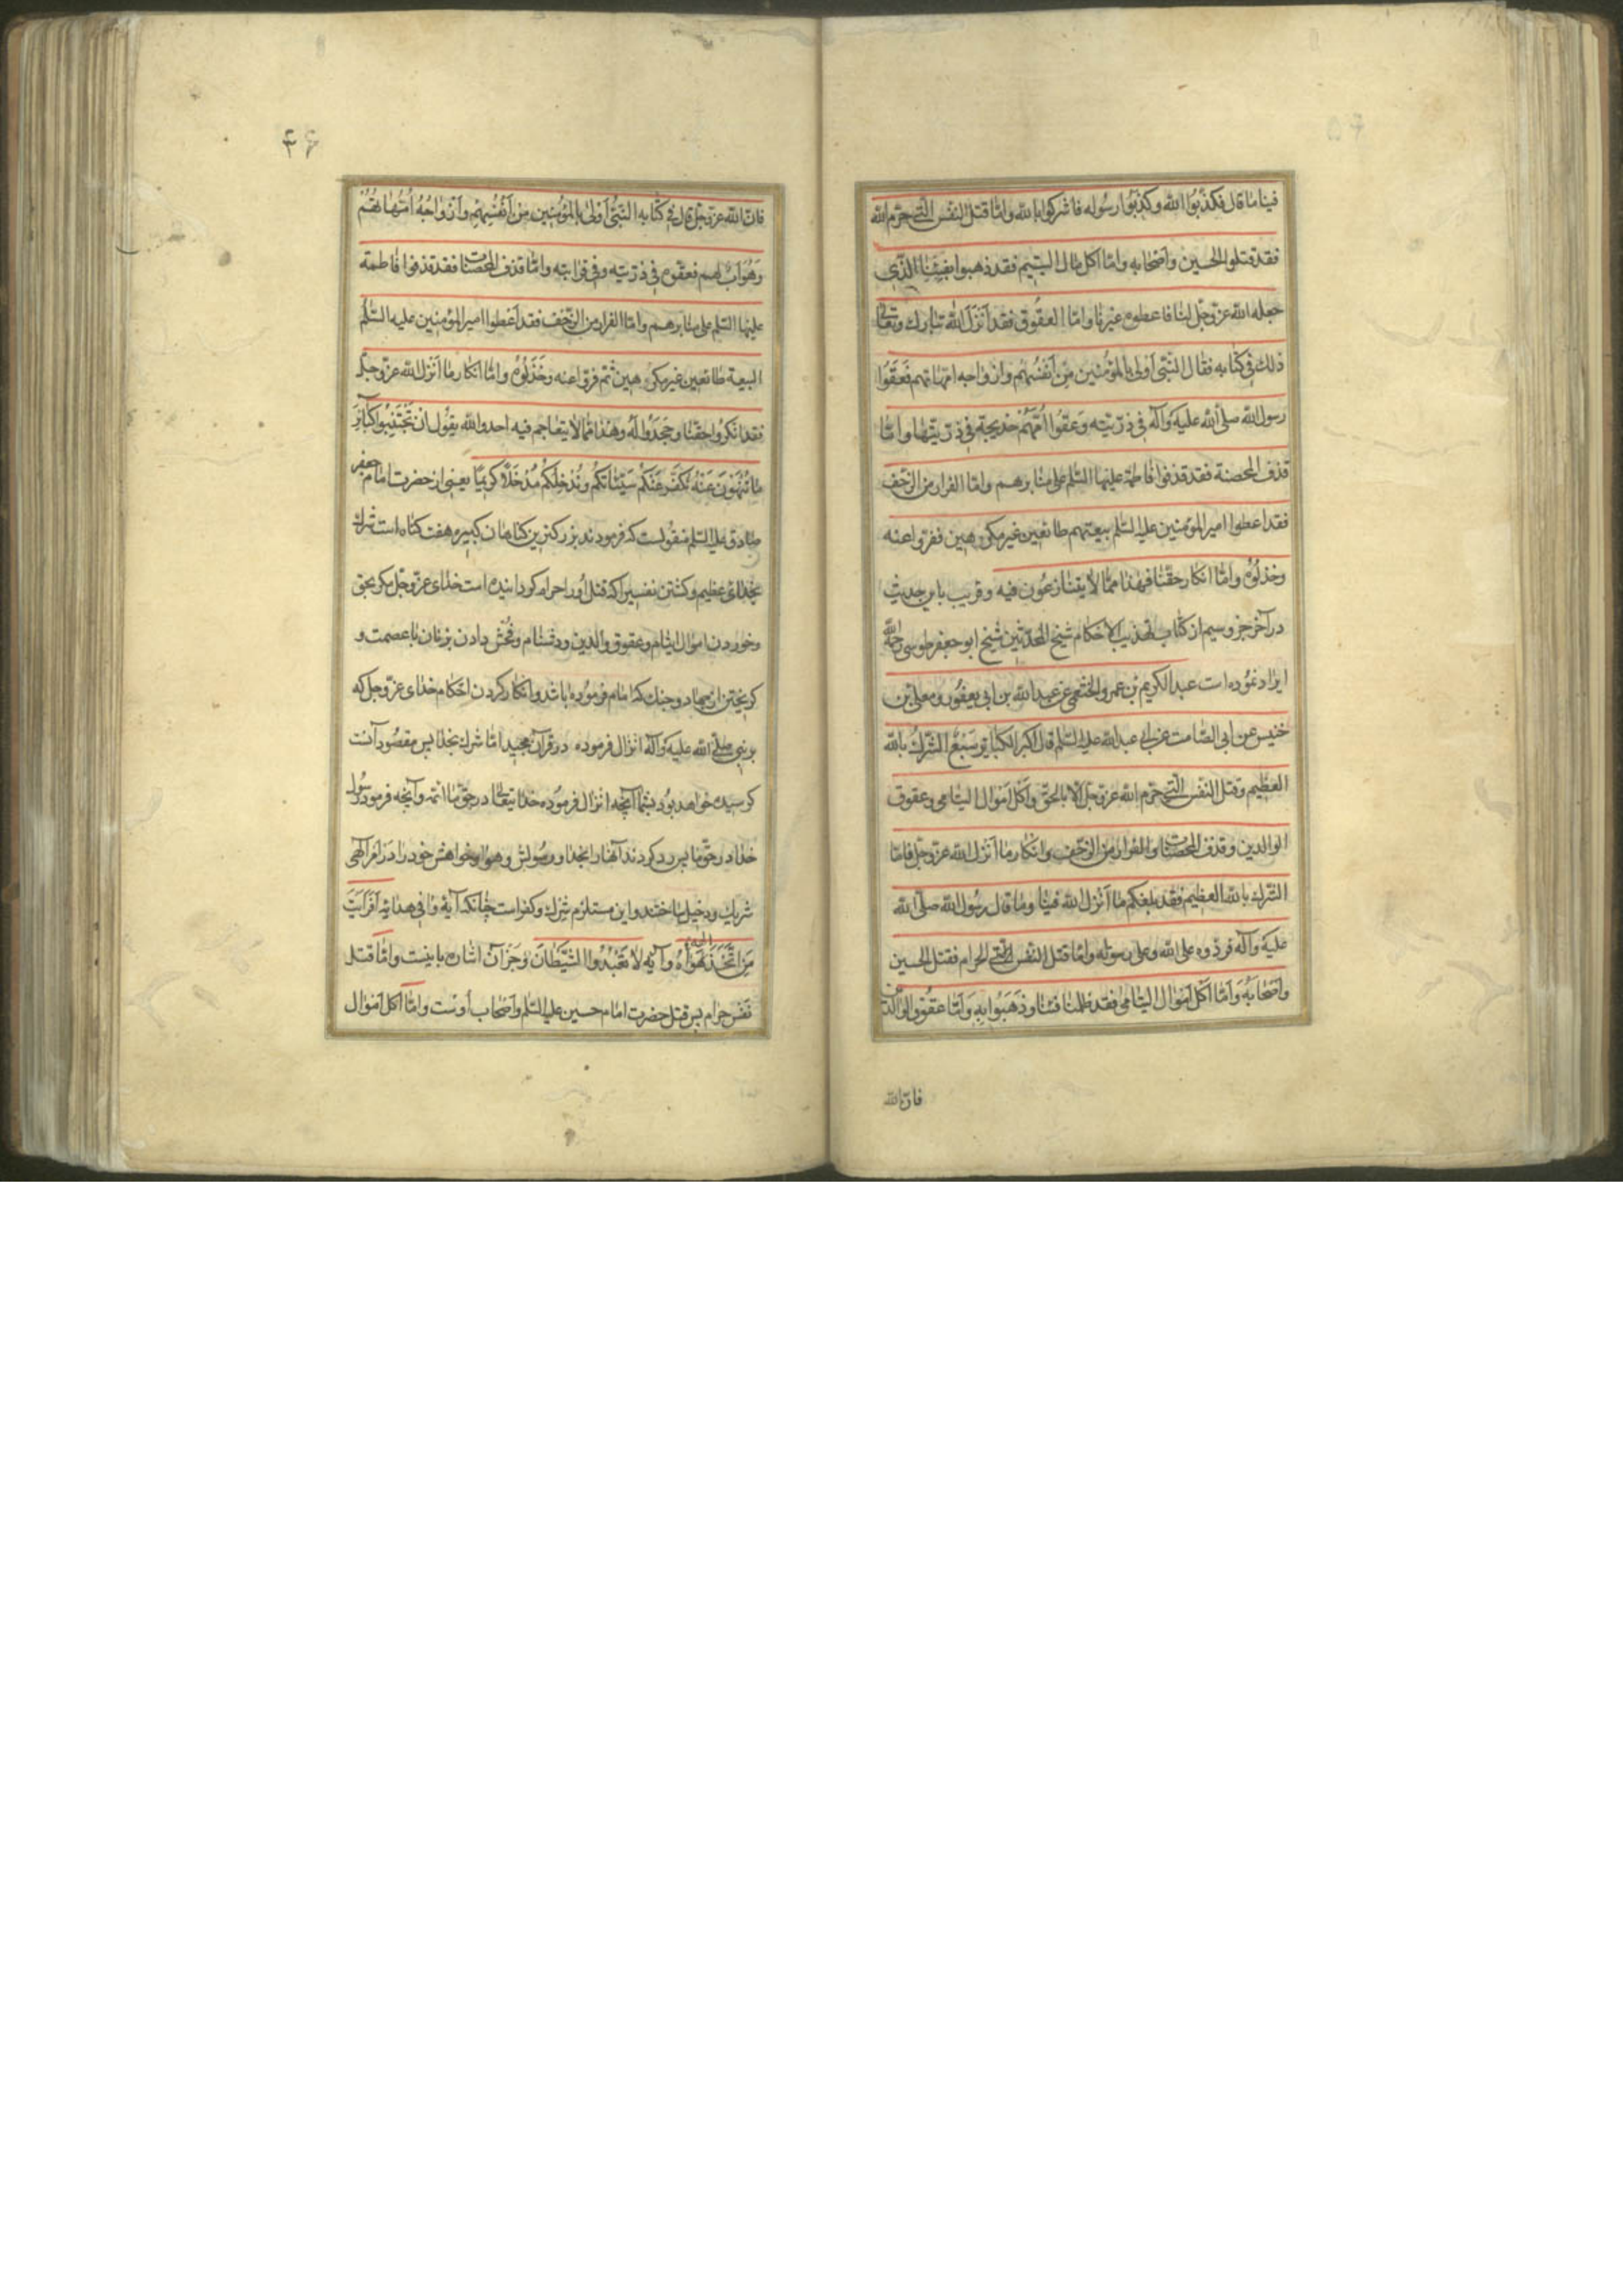 فينا ما قال فكذّبوا الله وكذّبوا رسوله فاشركوا بالله وامّا قتل النفس الّتى حرّم الله
فقد قتلوا الحسين واصحابه وامّا اكل مال اليتيم فقد ذهبوا بفيئنا الّذى
جعله الله عزّ وجلّ لنا فاعطوه غيرنا وامّا العقوق فقد اَنزَلَ الله تبارك وتعالى
ذلك فى كتابه فقال النّبى اَولى بالمؤمنين من اَنفسهم وازواجه امهاتهم فَعَقّوا
رسول الله صلى الله عليه وآله فى ذرّيّته وَعقّوا اُمّهم خديجة فى ذرّيتها وامّا
قذف المحصنة فقد قذفوا فاطمة عليها السّلم على منابرهم وامّا الفرار من الزّحف
فقد اعطوا امير المؤمنين عليه السّلم بيعتهم طائعين غير مكرهين ففرّوا عنه
وخذلوه وامّا انكار حقّنا فهذا ممّا لا يتنازعون فيه وقريب باين حديث
در آخر جزو سيم از كتاب تهذيب الاحكام شيخ المحدّثين شيخ ابو جعفر طوسى رحمه الله
ايراد نموده است عبد الكريم بن عمرو الخثعمى عن عبد الله بن ابى يعفور ومعلى بن
خنيس عن ابى الصّامت عن ابى عبد الله عليه السّلم قال اكبر الكبائر سَبعٌ الشّرك بالله
العظيم وقتل النفس الّتى حرّم الله عزّ وجلّ الّا بالحقّ واكل اموال اليتامى وعقوق
الوالدين وقذف المحصنات والفرار من الزّحف وانكار ما اَنزل الله عزّ وجلّ فامّا
الشّرك بالله العظيم فقد بلغكم ما اَنزل الله فينا وما قال رسول الله صلّى الله
عليه وآله فردّوه على الله وعلى رسوله وامّا قتل النّفس الّتى الحرام فقتل الحسين
واصحابه وَامّا اكل اموال اليتامى فقد ظلمنا فيئنا وذَهَبُوا به وَامّا عقوق الوالدين
فانّ الله
۴۶
فانّ الله عزّ وجلّ قال فى كتابه النّبىّ اَولى بالمؤمنين من اَنفسهم وَازواجه اُمّهاتهم
وَهُوَ اَبٌ لهم فعقّوه فى ذرّيّته وفى قرابته وامّا قذف المحصنات فقد قذفوا فاطمة
عليها السّلم على منابرهم وامّا الفرار من الزّحف فقد اَعطوا امير المؤمنين عليه السّلم
البيعة طائعين غير مكرهين ثمّ فرّوا عنه وخَذَلُوهُ وامّا انكار ما اَنزل الله عزّ وجلّ
فقد انكروا حقّنا وجَحَدُوا لَه وهذا ممّا لا يتعاجم فيه احد والله يقول ان تَجتَنِبُوا كَبائِرَ
ما تُنهَونَ عَنهُ نُكَفِّر عَنكُم سَيِّئاتِكُم ونُدخِلكُم مُدخَلاً كريمًا يعنى از حضرت امام جعفر
صادق عليه السّلم منقولست كه فرمودند بزركترين كناهان كبيره هفت كناه است شرك
بخداى عظيم وكشتن نفسيرا كه قتل اورا حرام كردانيده است خداى عزّ وجلّ مكر بحق
وخوردن اموال ايتام وعقوق والدين ودشنام وفحش دادن بزنان با عصمت و
كريختن از جهاد وجنك كه امام فرموده باشد وانكار كردن احكام خداى عزّ وجل كه
بر نبى صلّى الله عليه وآله انزال فرموده در قرآن مجيد امّا شرك بخدا پس مقصود آنست
كه رسيده خواهد بود بشما آنچه انزال فرموده خدايتعالى در حقّ ما ائمّه وآنچه فرمود رسول
خدا در حقّ ما پس رد كردند آنهارا بخدا ورسولش وهوا وخواهش خودرا در امر الهى
شريك ودخيل ساختند واين مستلزم شرك وكفر است چنانكه آيۀ وافى هدايه اَفَرَاَيتَ
مَنِ اتَّخَذَ اِلهَهُ هَواهُ وآيه لا تَعبُدُوا الشَّيطانَ وجز آن اشاره باينست وامّا قتل
نفس حرام پس قتل حضرت امام حسين عليه السّلم واصحاب اوست وامّا اكل اموال